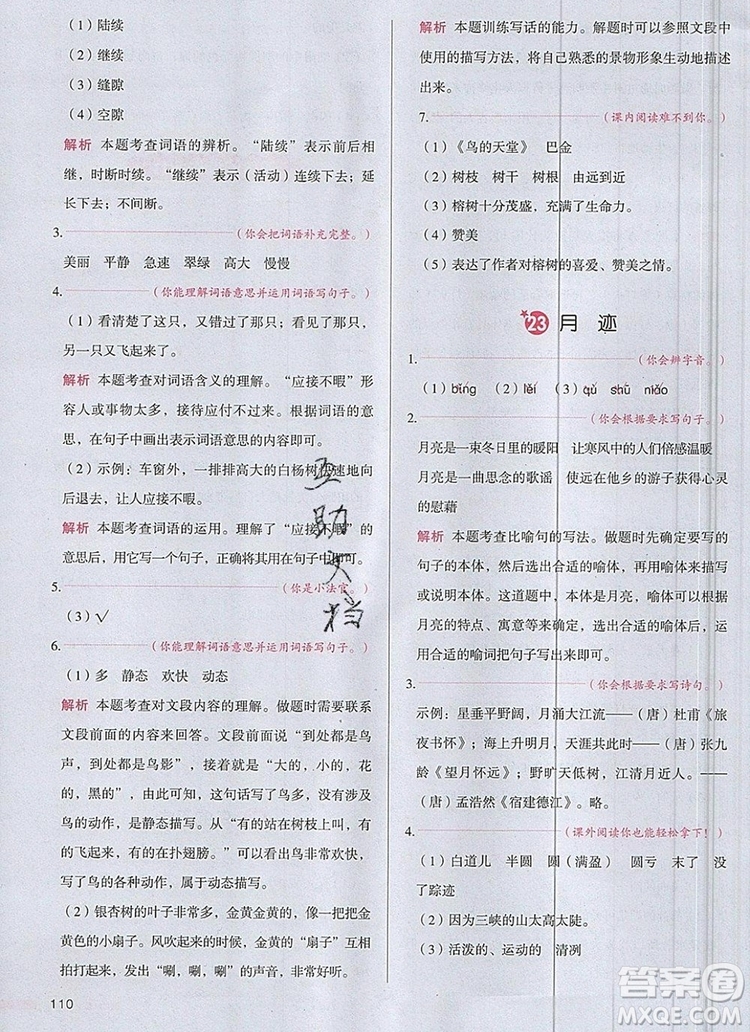 (1)陆续
(2)继续
(3)缝隙
(4)空隙
解析 本题考查词语的辨析。“陆续”表示前后相
继,时断时续。“继续”表示(活动)连续下去;延
长下去;不间断。
3.(你会把词语补充完整。)
美丽 平静 急速 翠绿 高大 慢慢
4.(你能理解词语意思并运用词语写句子。)
(1)看清楚了这只,又错过了那只;看见了那只,
另一只又飞起来了。
解析 本题考查对词语含义的理解。“应接不暇”形
容人或事物太多,来不及接待应付。根据词语的意
思,在句子中画出表示词语意思的内容即可。
(2)示例:车窗外,一排排高大的白杨树快速地向
后退去,让人应接不暇。
解析 本题考查词语的运用。理解了“应接不暇”的意
思后,用它写一个句子,正确将其用在句子中即可。
5.(你是小法官。)
(3)√
6.(你能理解词语意思并运用词语写句子。)
(1)多 静态 欢快 动态
解析 本题考查对文段内容的理解。做题时需要联系
文段前面的内容来回答。文段前面说“到处都是鸟
声,到处都是鸟影”,就是在说“大的,小的,花
的,黑的”,由此可知,这句话写了鸟多,没有涉及
鸟的动作,是静态描写。从“有的站在树枝上叫,有
的飞起来,有的在扑翅膀。”可以看出鸟非常欢快,
写了鸟的各种动作,属于动态描写。
(2)银杏树的叶子非常多,金黄金黄的,像一把金
黄色的小扇子。风吹起来的时候,“扇子”就互相
拍打起来,发出“唰,唰,唰”的声音,非常好听。
110
解析 本题训练写话的能力。解题时可以参照文段中
使用的描写方法,将自己熟悉的景物形象生动地描述
出来。
7.(课内阅读难不到你。)
(1)《鸟的天堂》 巴金
(2)树枝 树干 树根 由远到近
(3)榕树十分茂盛,充满了生命力。
(4)赞美
(5)表达了作者对榕树的喜爱、赞美之情。
23 月 迹
1.(你会辨字音。)
(1)bǐng (2)lěi (3)qǔ shū niǎo
2.(你会根据要求写句子。)
月亮是一束冬日里的暖阳 让寒风中的人们倍感温暖
月亮是一曲思念的歌谣 使远在他乡的游子获得心灵
的慰藉
解析 本题考查比喻句的写法。做题时要先明确要写的
句子的本体,然后选出合适的喻体,用喻体来描写
或说明本体。这道题中,本体是月亮,喻体可以根据
月亮的特点、寓意等来选择合适的喻体,最后选择使
用合适的喻词把句子写出来即可。
3.(你会根据要求写诗句。)
示例:星垂平野阔,月涌大江流——(唐)杜甫《旅
夜书怀》;海上升明月,天涯共此时——(唐)张九
龄《望月怀远》;野旷天低树,江清月近人。——
(唐)孟浩然《宿建德江》。略。
4.(课外阅读你也能轻松拿下!)
(1)白道儿 半圆 圆(满盈) 圆亏 末了 没
了踪迹
(2)因为三峡的山太高太陡。
(3)活泼的、运动的 清冽
互助文档
答案圈
MXQE.COM